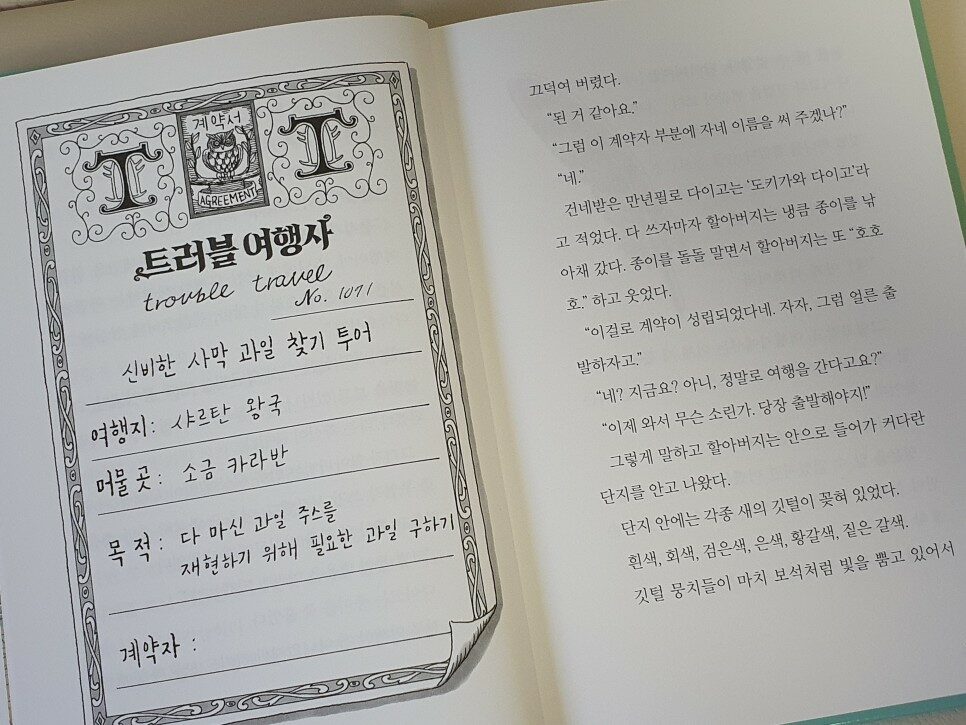 계약서
T T
AGREEMENT
트러블 여행사
trouble travel
No. 1071
신비한 사막 과일 찾기 투어
여행지: 샤르탄 왕국
머물 곳: 소금 카라반
목적: 다 마신 과일 주스를
재현하기 위해 필요한 과일 구하기
계약자 :
끄덕여 버렸다.
“된 거 같아요.”
“그럼 이 계약자 부분에 자네 이름을 써 주겠나?”
“네.”
건네받은 만년필로 다이고는 ‘도키가와 다이고’라
고 적었다. 다 쓰자마자 할아버지는 냉큼 종이를 낚
아채 갔다. 종이를 돌돌 말면서 할아버지는 또 “호호
호.” 하고 웃었다.
“이걸로 계약이 성립되었다네. 자자, 그럼 얼른 출
발하자고.”
“네? 지금요? 아니, 정말로 여행을 간다고요?”
“이제 와서 무슨 소린가. 당장 출발해야지!”
그렇게 말하고 할아버지는 안으로 들어가 커다란
단지를 안고 나왔다.
단지 안에는 각종 새의 깃털이 꽂혀 있었다.
흰색, 회색, 검은색, 은색, 황갈색, 짙은 갈색.
깃털 뭉치들이 마치 보석처럼 빛을 뿜고 있어서